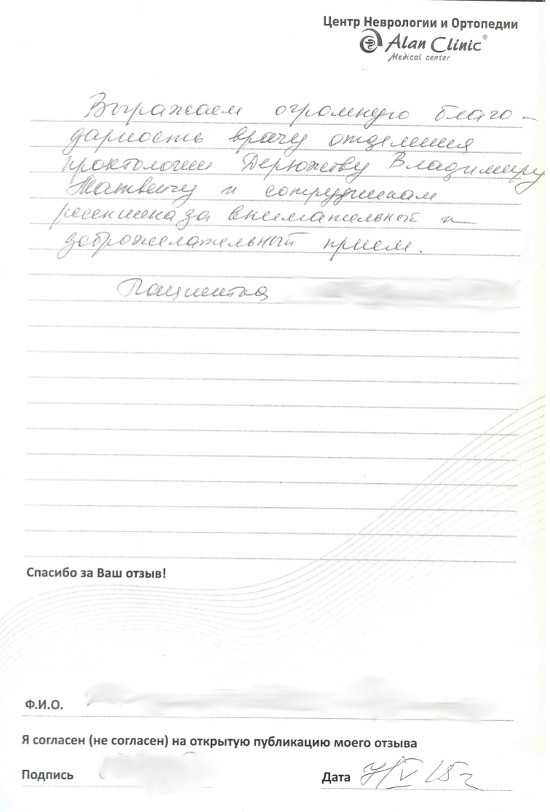 Центр Неврологии и Ортопедии
Alan Clinic®
Medical center
Выражаем огромную благо-
дарность врачу отделения
проктологии Дерюжову Владимиру
Матвеичу и сотрудникам
ресепшена за внимательный и
доброжелательный прием.
Пациентка
Спасибо за Ваш отзыв!
Ф.И.О.
Я согласен (не согласен) на открытую публикацию моего отзыва
Подпись
Дата 7/V 15г